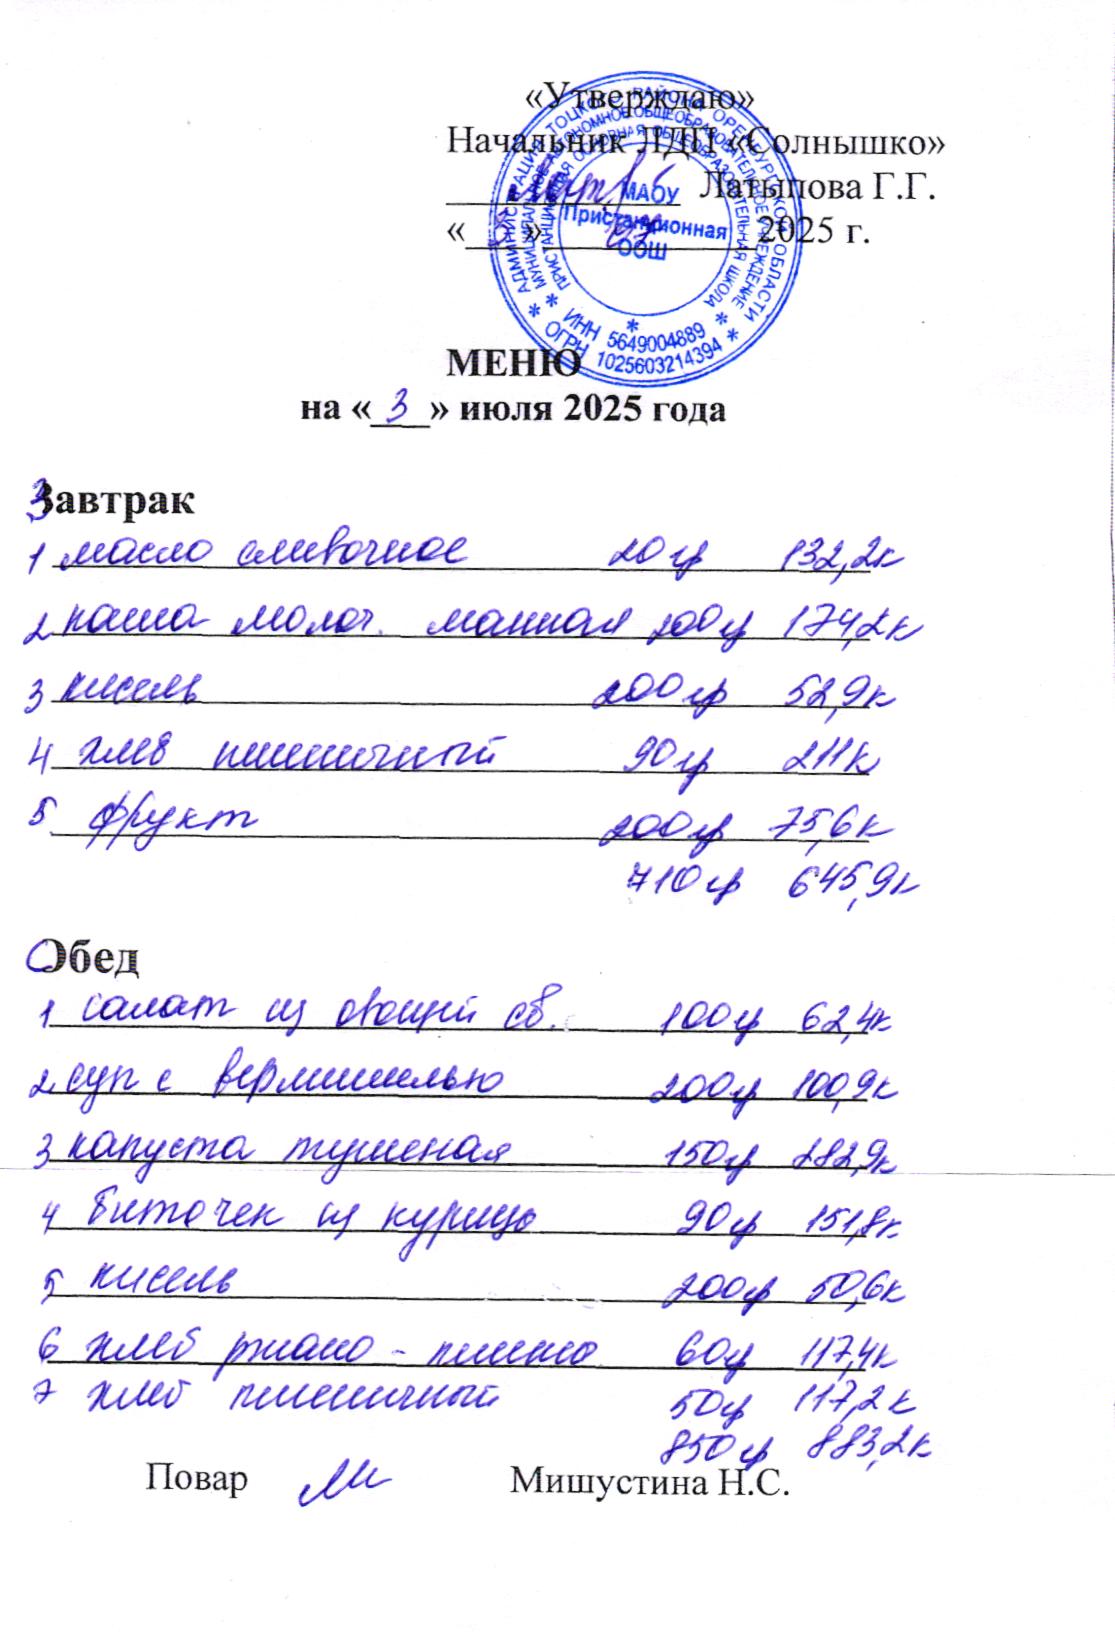 «Утверждаю»
Начальник ЛДП «Солнышко»
Латыпова Г.Г.
«3» 2025 г.
АДМИНИСТРАЦИЯ ТОЦКОГО РАЙОНА ОРЕНБУРГСКОЙ ОБЛАСТИ
МУНИЦИПАЛЬНОЕ АВТОНОМНОЕ ОБЩЕОБРАЗОВАТЕЛЬНОЕ УЧРЕЖДЕНИЕ
ПРИСТАНЦИОННАЯ ОСНОВНАЯ ОБЩЕОБРАЗОВАТЕЛЬНАЯ ШКОЛА
МАОУ
Пристанционная
ООШ
* ИНН 5649004889 *
* ОГРН 1025603214394 *
МЕНЮ
на «3» июля 2025 года
Завтрак
1 масло сливочное 20 гр 132,2к
2 каша молоч. манная 200гр 174,2к
3 кисель 200 гр 52,9к
4 хлеб пшеничный 90гр 211к
5 фрукт 200гр 75,6к
710 гр 645,9к
Обед
1 салат из овощей св. 100гр 62,4к
2 суп с вермишелью 200гр 100,9к
3 капуста тушеная 150гр 282,9к
4 биточек из курицы 90гр 151,8к
5 кисель 200гр 50,6к
6 хлеб ржано - пшено 60гр 117,4к
7 хлеб пшеничный 50гр 117,2к
850гр 883,2к
Повар Мишустина Н.С.